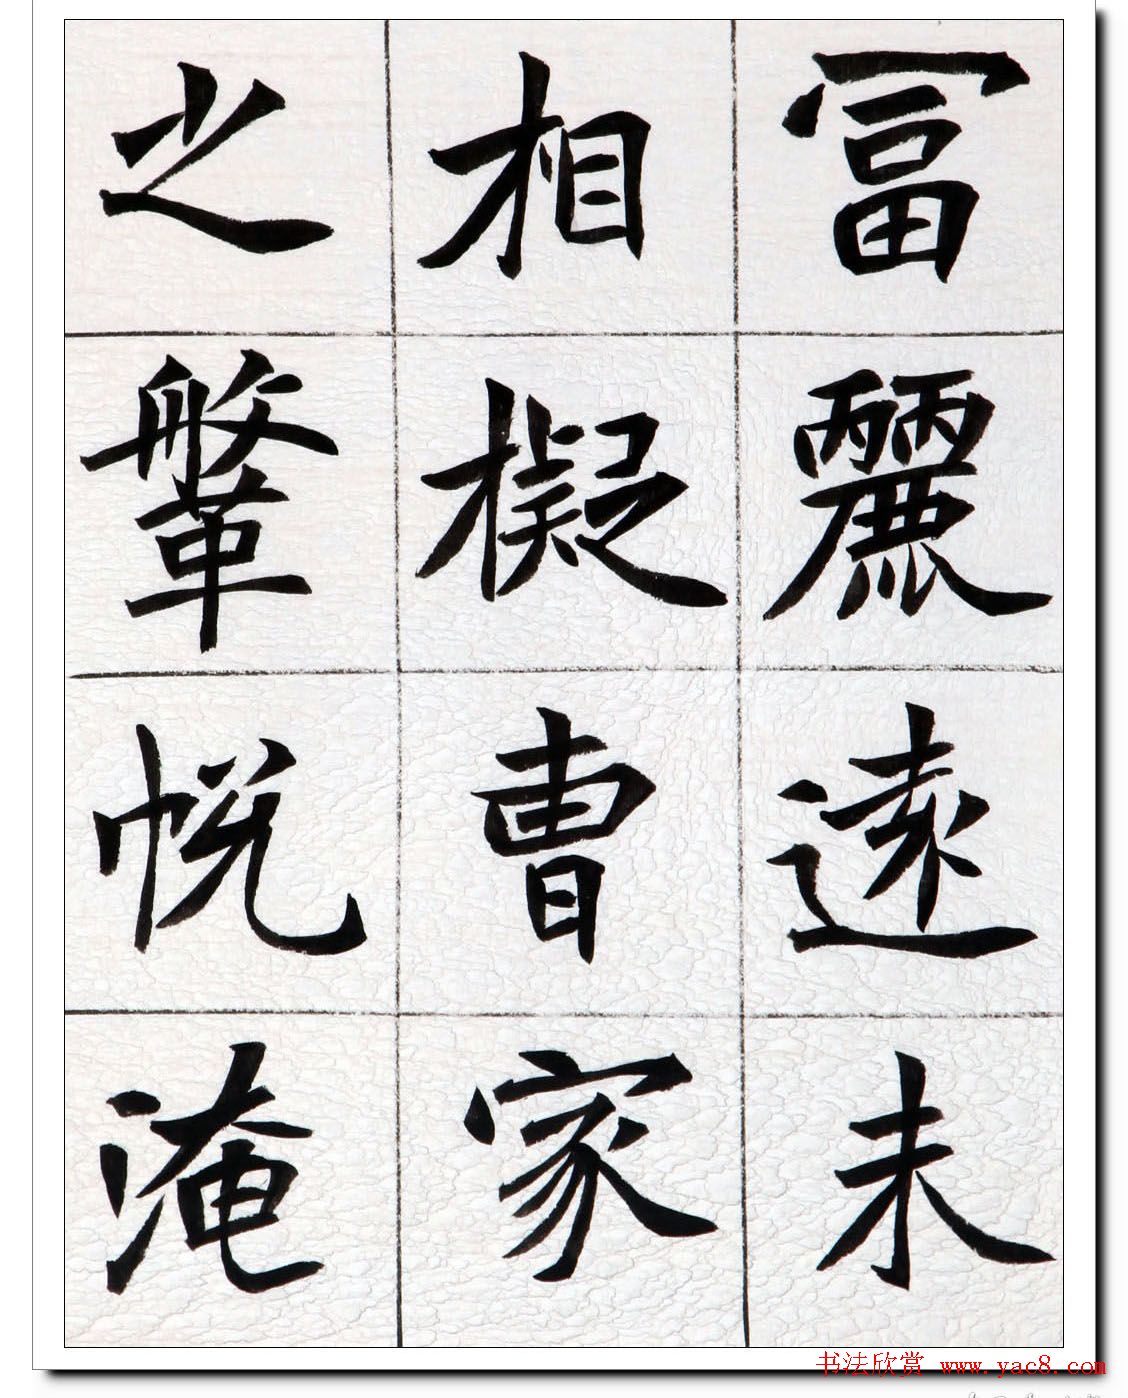 冨麗遠未
相擬曹家
之鞶帨淹
书法欣赏 www.yac8.com